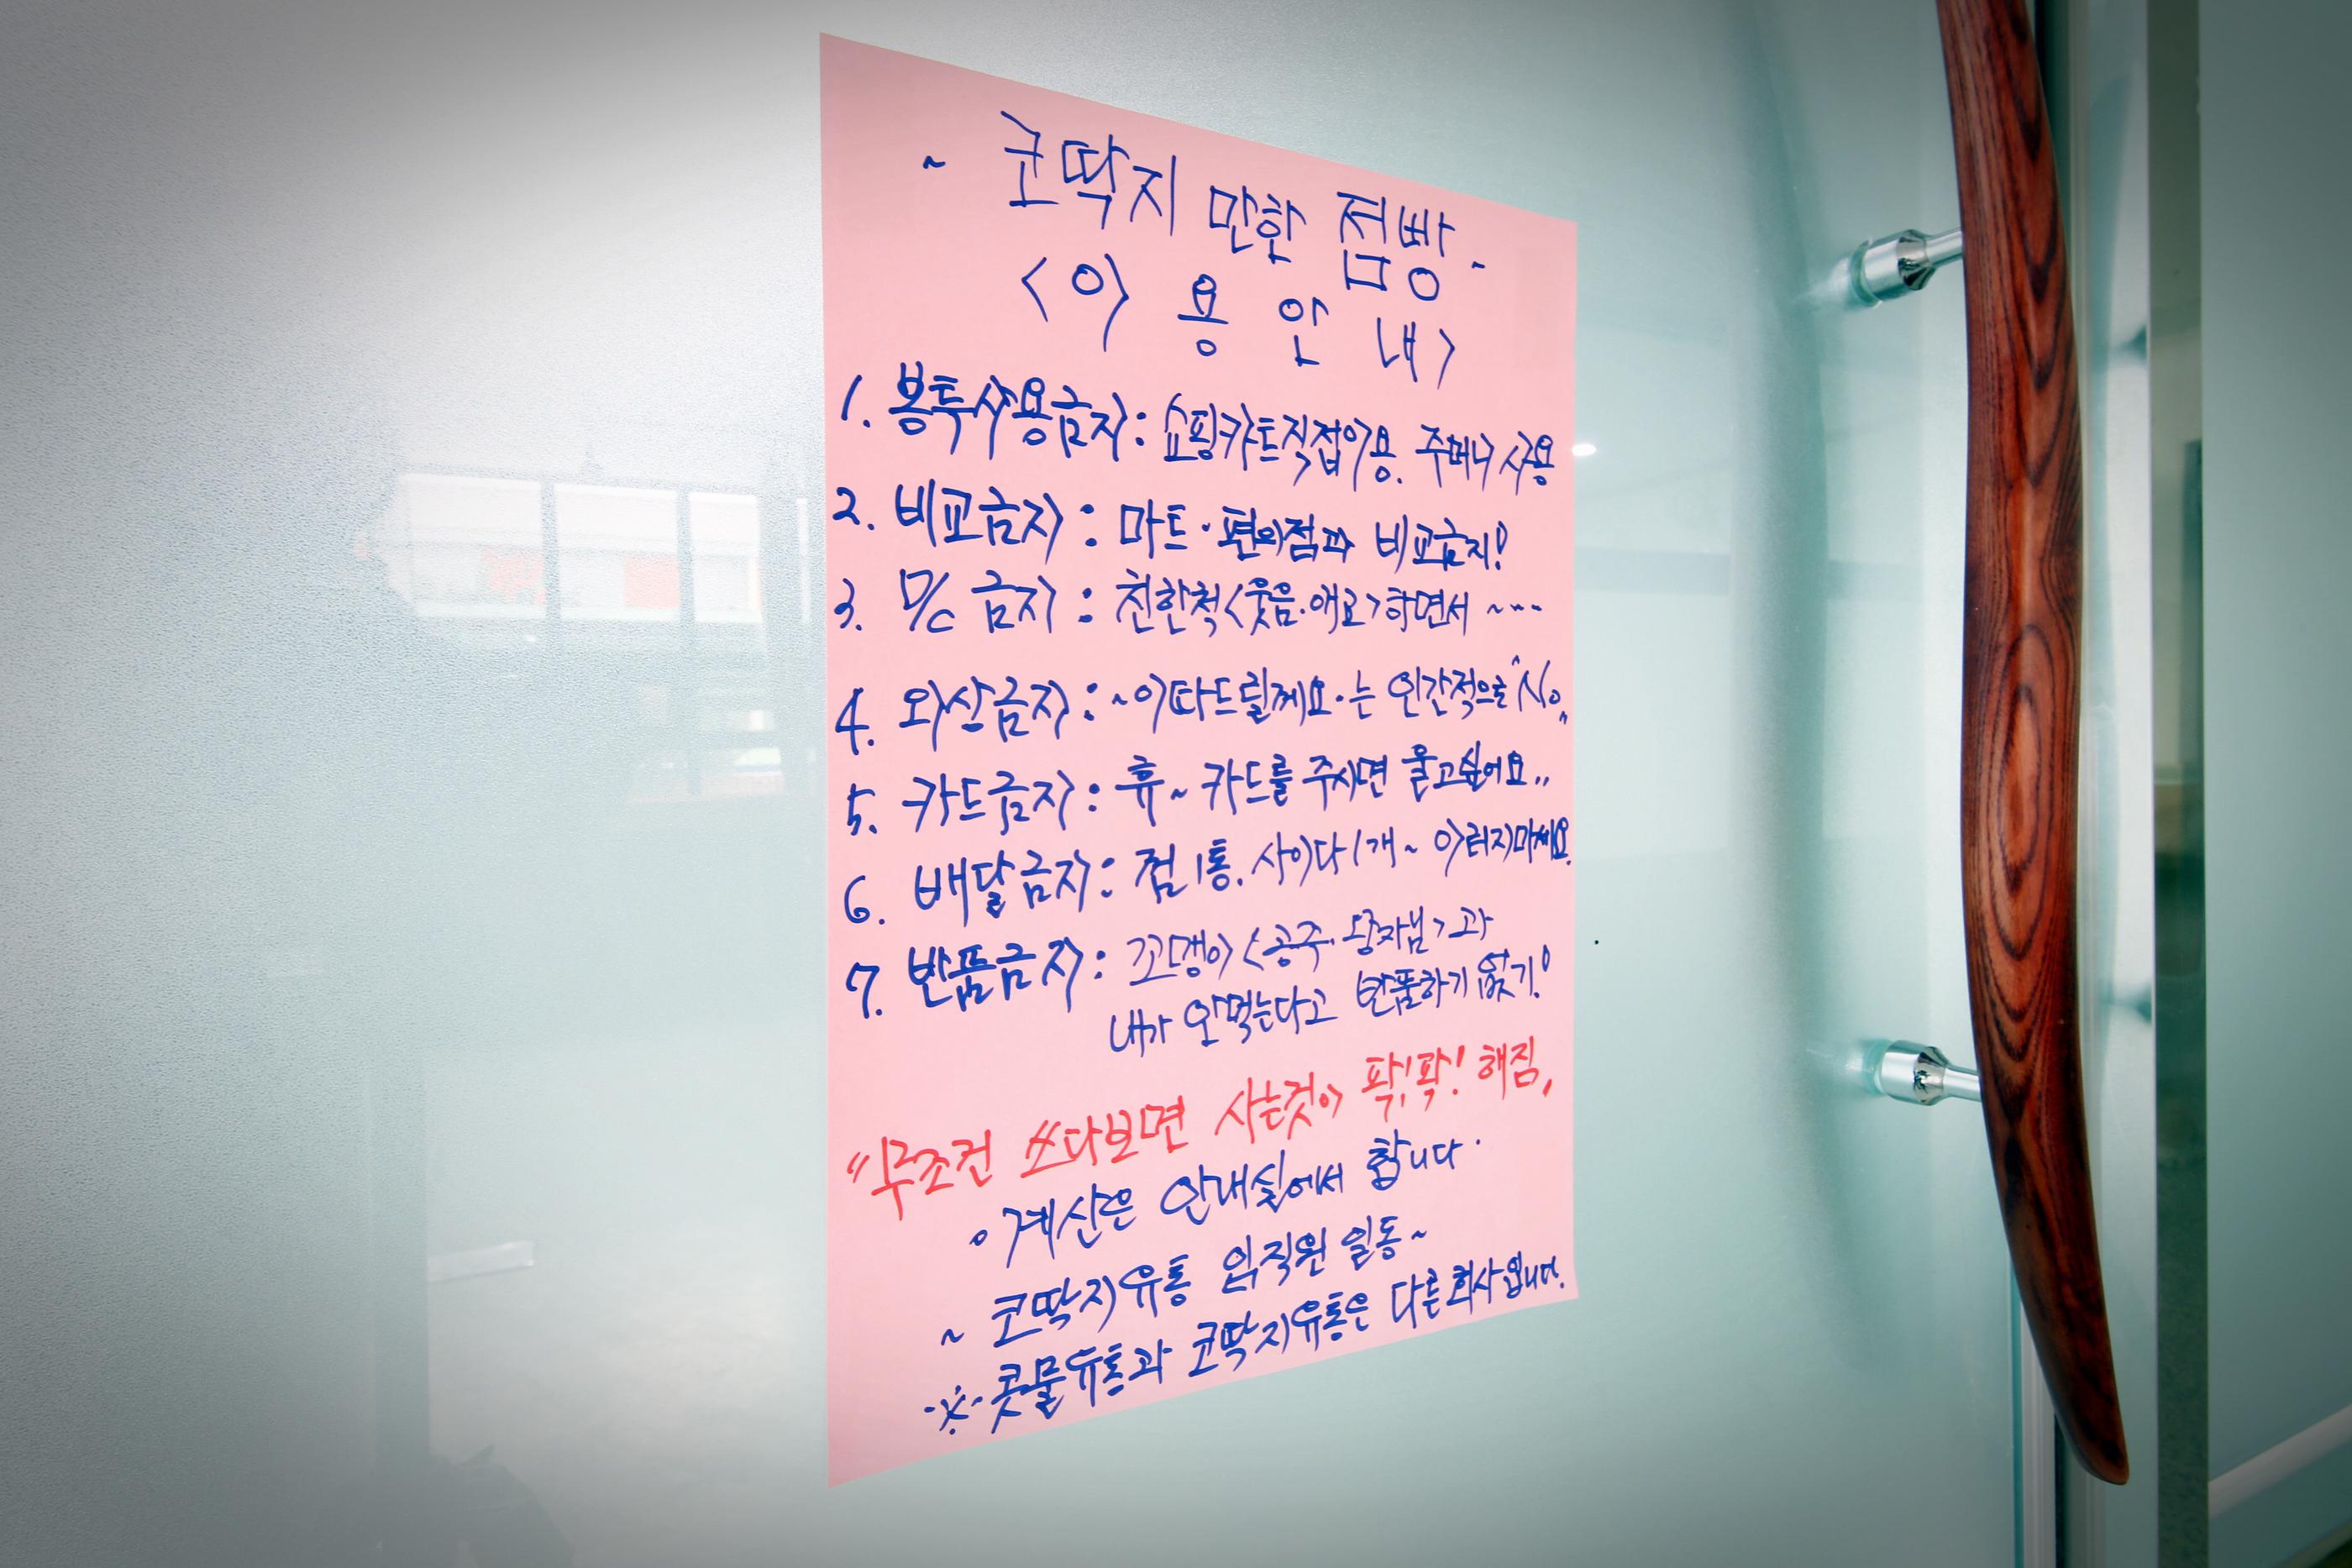 ~ 코딱지 만한 점빵 ~
<이 용 안 내>
1. 봉투사용금지: 쇼핑카트직접이용. 주머니 사용
2. 비교금지: 마트·편의점과 비교금지!
3. D/c 금지: 친한척<웃음·애교>하면서 ~---
4. 외상금지: ~이따드릴께요·는 인간적으로 "No"
5. 카드금지: 휴~ 카드를 주시면 울고싶어요..
6. 배달금지: 껌1통. 사이다1개~ 이러지마세요.
7. 반품금지: 꼬맹이<공주·왕자님>과
내가 안먹는다고 반품하기 없기!
"무조건 쓰다보면 사는것이 팍!팍! 해짐,
° 계산은 안내실에서 합니다.
~ 코딱지유통 임직원 일동~
※ 콧물유통과 코딱지유통은 다른회사입니다.